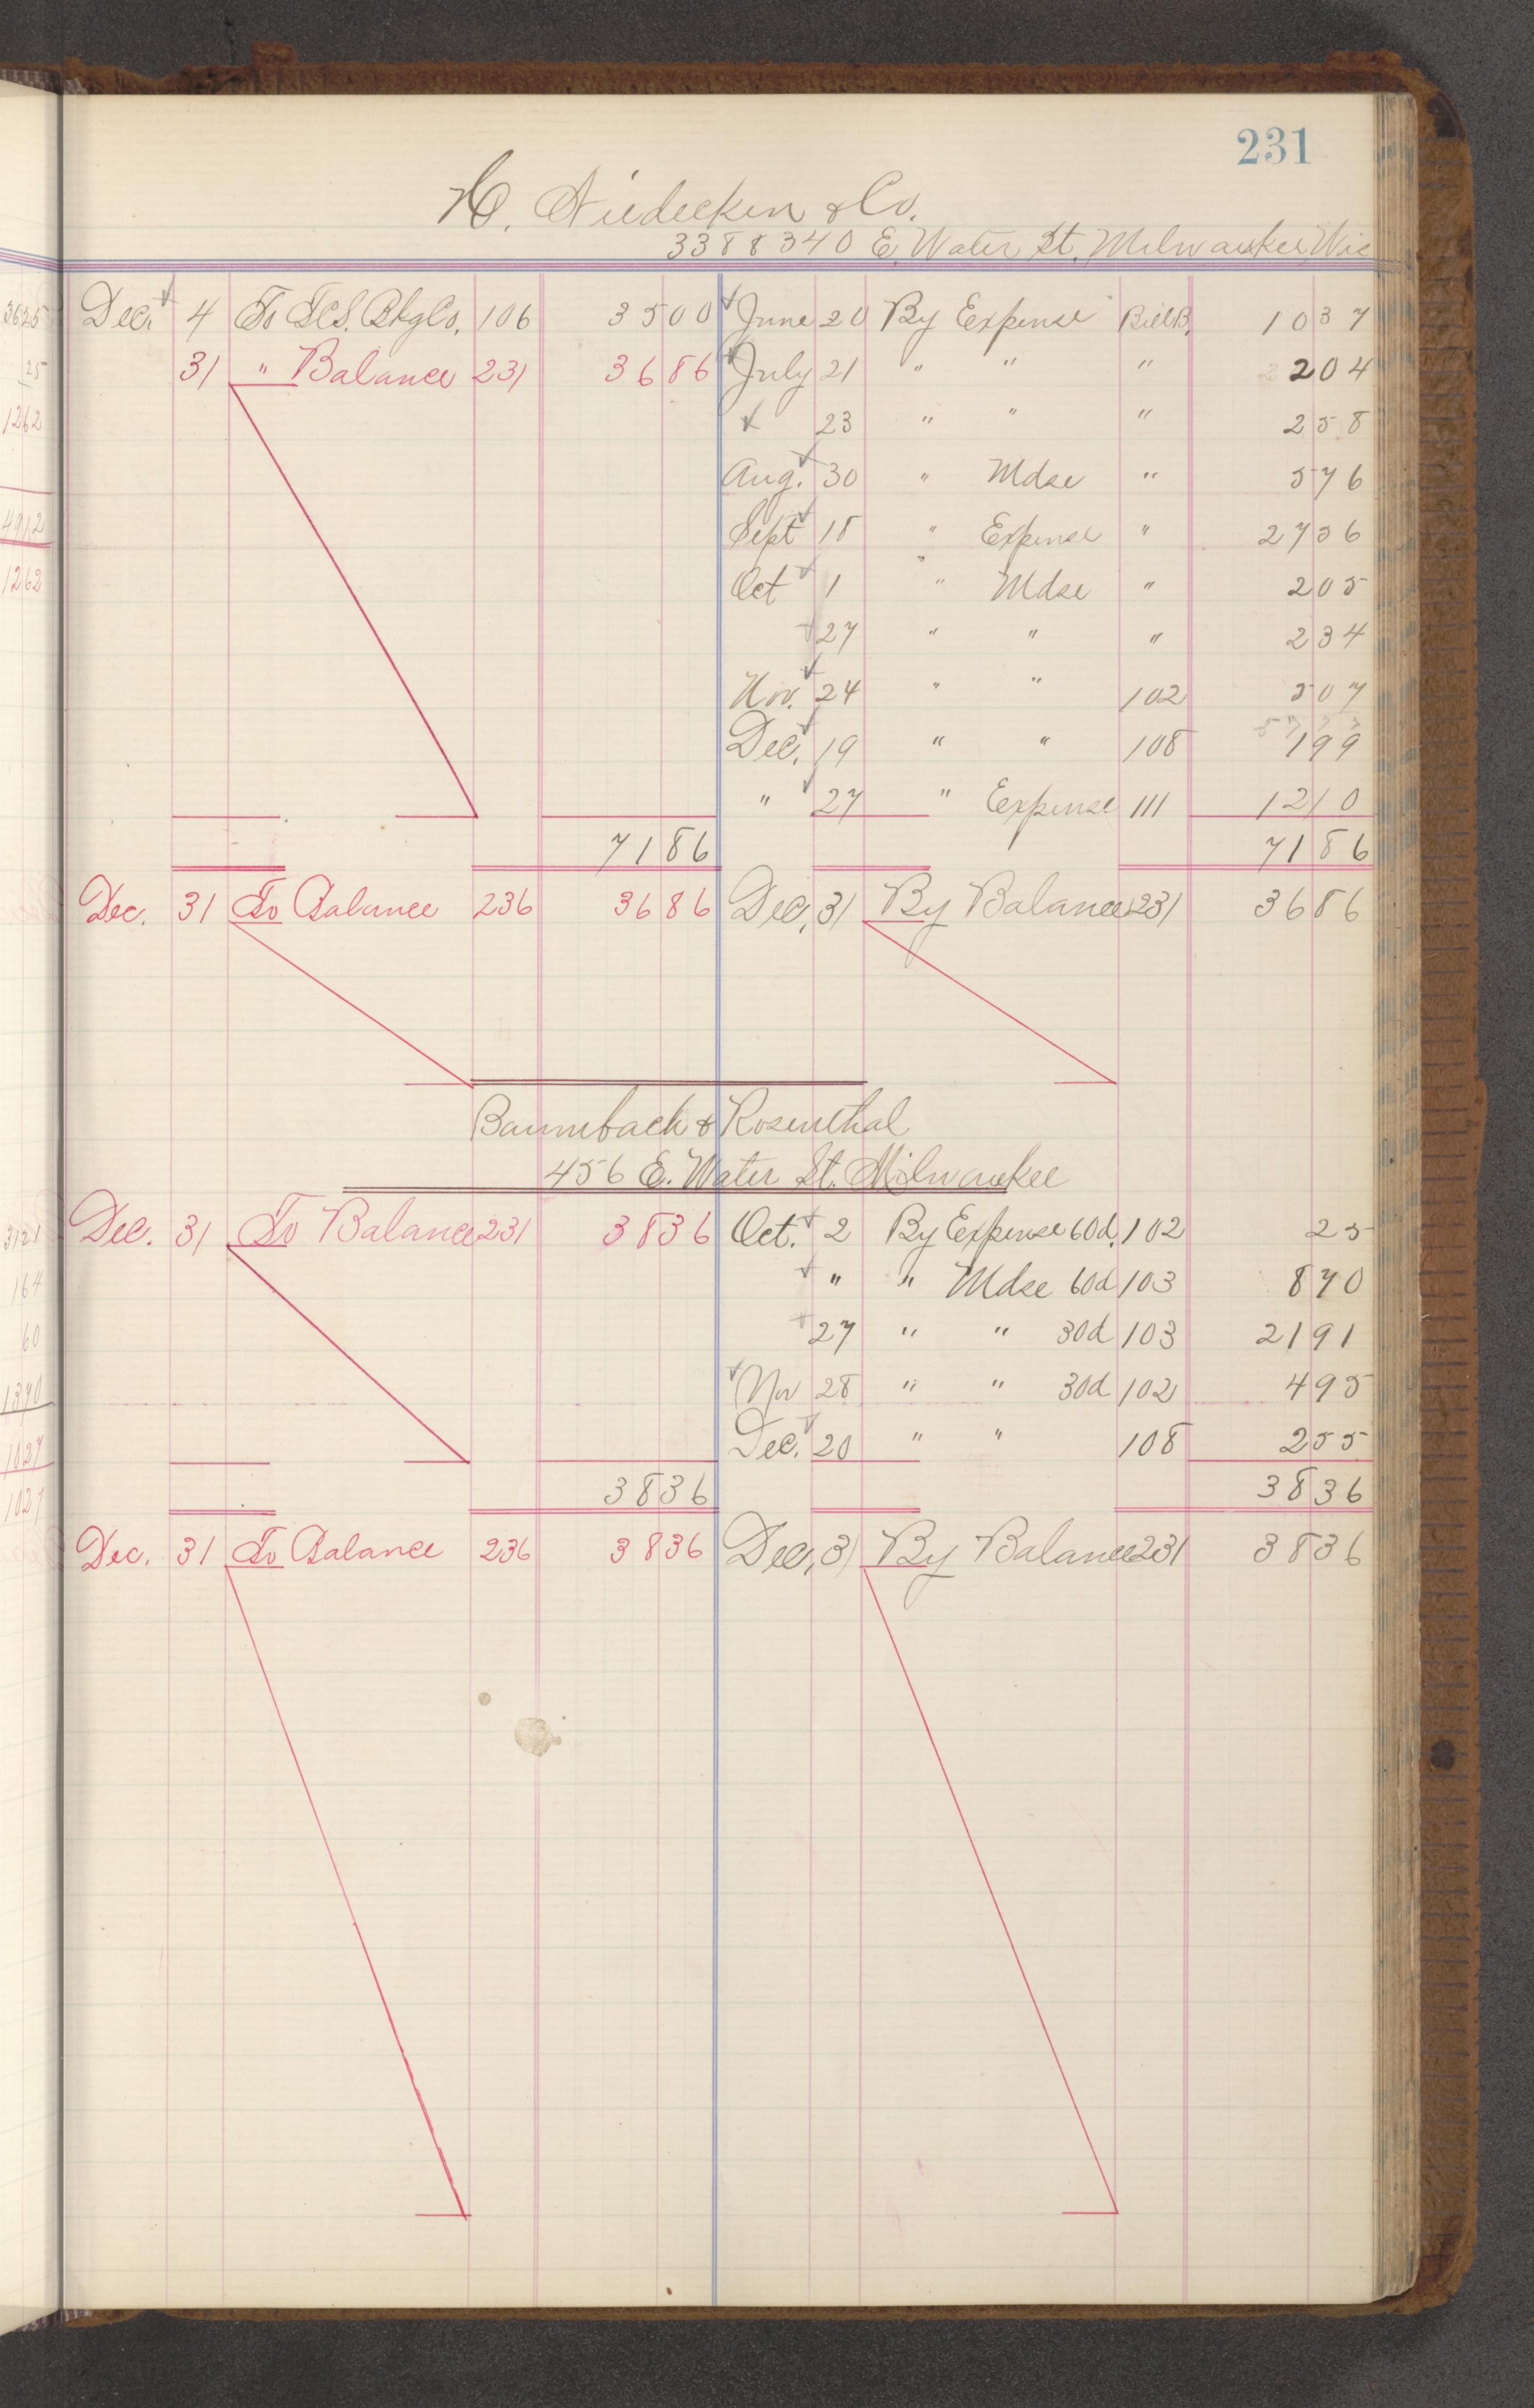 231
H. Niedecken & Co.
338 & 340 E. Water St. Milwaukee, Wis
Dec. 4 To T.C.S. Bkg Co. 106 35 00 June 20 By Expense Bill B. 10 37
31 " Balance 231 36 86 July 21 " " " 2 04
23 " " " 2 58
Aug. 30 " Mdse " 5 76
Sept 18 " Expense " 27 56
Oct 1 " Mdse " 2 05
27 " " " 2 34
Nov. 24 " " 102 5 07
Dec. 19 " " 108 1 99
" 27 " Expense 111 12 10
71 86 71 86
Dec. 31 To Balance 236 36 86 Dec. 31 By Balance 231 36 86
Baumbach & Rosenthal
456 E. Water St. Milwaukee
Dec. 31 To Balance 231 38 36 Oct. 2 By Expense 60d. 102 25
" " Mdse 60d 103 8 70
27 " " 30d 103 21 91
Nov 28 " " 30d 102 4 95
Dec. 20 " " 108 2 55
38 36 38 36
Dec. 31 To Balance 236 38 36 Dec. 31 By Balance 231 38 36
3625
25
1262
4912
1262
3121
164
60
1340
1027
1027